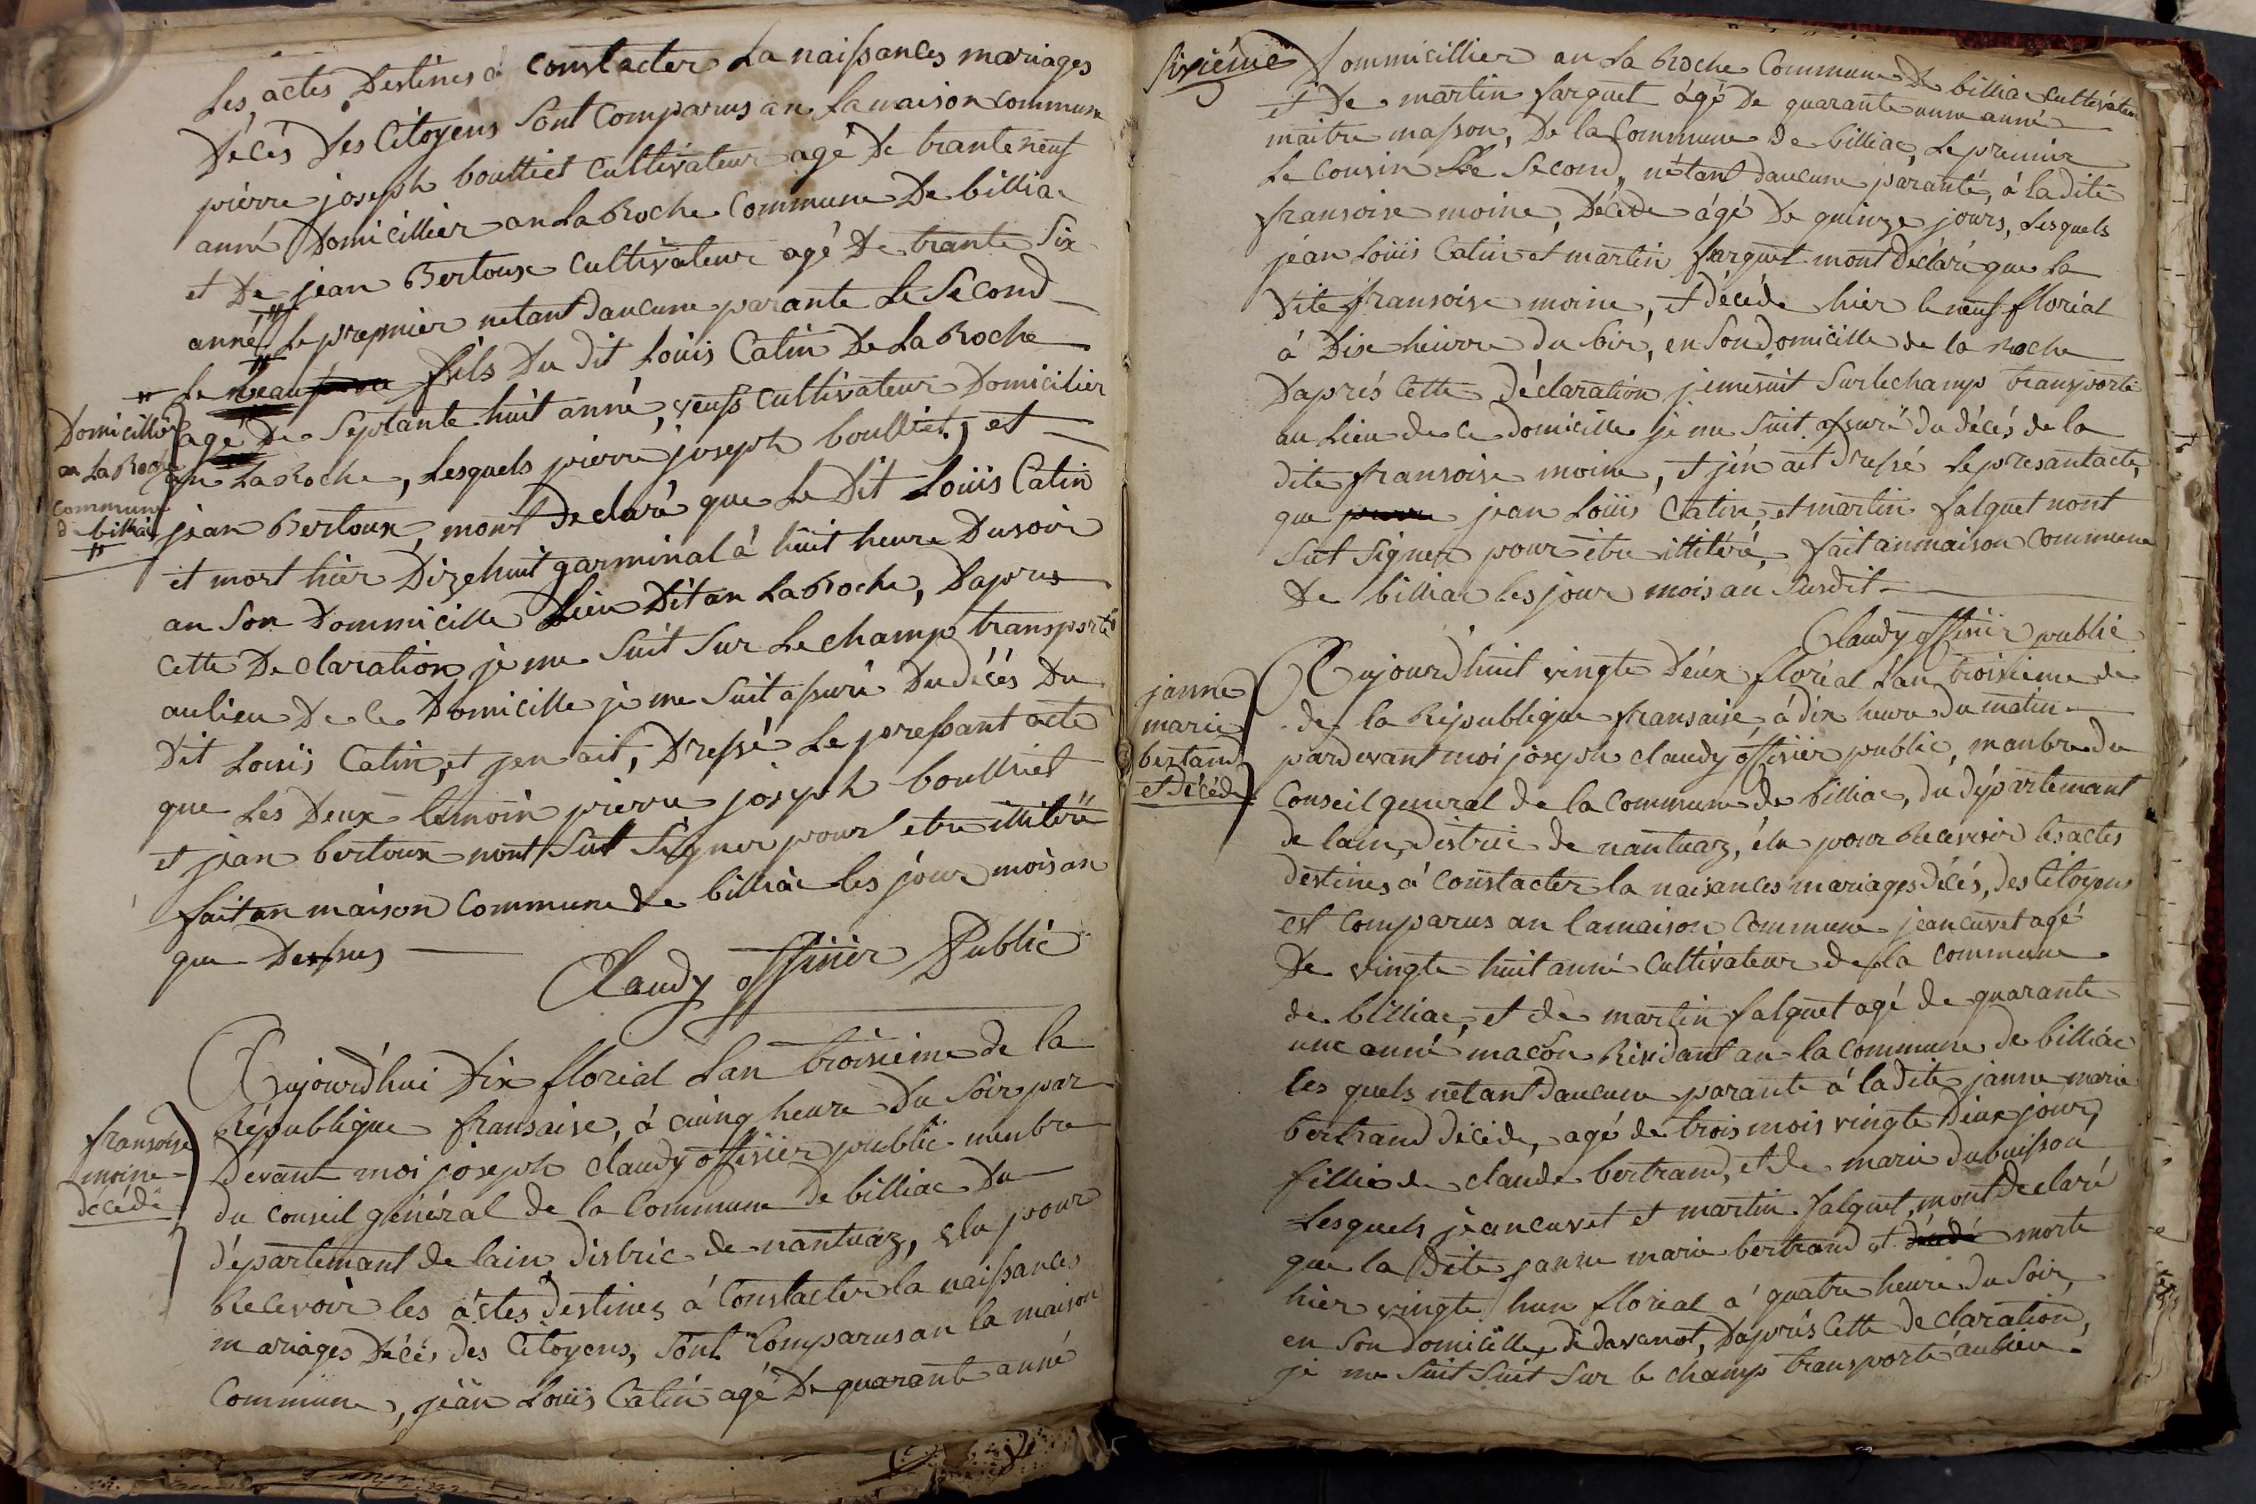 Les actes Destinés à constacter La naissances mariages
Décés Des Citoyens Sont Comparus an La maison commune
pierre joseph boulliet Cultivateur agé De trante neuf
anné Domicillier an La Roche Commune De billiac
et De jean Bertoux Cultivateur agé De trante Six
anné Le premier netant daucune parante Le Second
Le beau fils Du dit Loüis Catin De La Roche
agé De Septante huit anné, veuf Cultivateur Domicilier
an La Roche, Lesquels pierre joseph boulliet, et
jean Bertoux, mont declaré que Le Dit Loüis Catin
et mort hier Dizehuit garminal à huit heure Du soir
an Son Dommicille Lieu Dit an La Roche, Daprés
Cette Declaration je me Suit Sur Le champ transporté
au lieu De Ce Domicille je me Suit assuré Du décés Du
Dit Loüis Catin, et jen ait, Dressé Le pressant acte
que Les Deux temoin pierre joseph boulliet
et jean bertoux nont Sut Signer pour etre illiteré
fait an maison Commune de billiac les jour mois an
que Dessus
Claudy offisier Public
Domicillié
an La Roche
Commune
de billiac
Aujourd'hui Dix floréal Lan troisieme de la
République fransaise, à cuinq heure Du Soir par
Devant moi joseph claudy offisier public menbre
du Conseil général de la Commune de billiac Du
départemant de lain, distric de nantuaz, élu pour
Recevoir les actes destinez à Constacter la naissances
mariages Décés des Citoyens, Sont Comparus an la maison
Commune, jéan Loüis Catin agé De quarante anné
fransoise
moine
décédé
Sixiéme
Dommicillier an La Roche Commune De billiac Cultivateur
et De martin farguet ágé De quarante unne anné
maitre masson, De la Commune De billiac, Le premier
Le Cousin Le Second, nétant daucune paranté, à la dite
fransoise moine, Décéde ágé De quinze jours, Lesquels
jéan Loüis Catin et martin farguet mont Déclaré que La
Dite fransoise moine, et décéde hier le neuf floréal
à Dix heurre du Soir, en Son domicille de la Roche
Daprés Cette déclaration je me suit Sur le champ transporté
au Lieu de ce domicille je me Suit assuré du décés de la
dite fransoise moine, et jén ait Dressé Le presant acte,
que jean Loüis Catin, et martin falguet nont
Sut Signer pour être illitéré, fait an maison Commune
De billiac les jour mois an Susdit
Claudy offisier public
Aujourd'huit vingte Déux floréal Lan troisieme de
de la République fransaise, à dix heure Du matin
pardevant moi joseph claudy offisier public, manbre du
Conseil general de la Commune de billiac, du départemant
de lain, distric de nantuaz, élu pour Recevoir les actes
destines à Constacter la naisances mariages décés, des Citoyens
est Comparus an la maison Commune jean cuvet agé
De vingte huit anné Cultivateur de la Commune
de billiac, et de martin falguet agé de quarante
une anné maçon Résidant an la Commune de billiac
les quels nétant daucune parante à la dite janne marie
bertrand décéde, agé de trois mois vingte Deux jour,
fillie de claude bertrand, et de marie dubuisson
Lesquels jéan cuvet et martin falguet, mont declaré
que la dite janne marie bertrand et morte
hier vingte hun floréal à quatre heure du Soir,
en Son domicille de davanot, Daprés Cette declaration,
je me Suit Suit Sur le champ transporté au lieu
janne
marie
bertand
et décéde